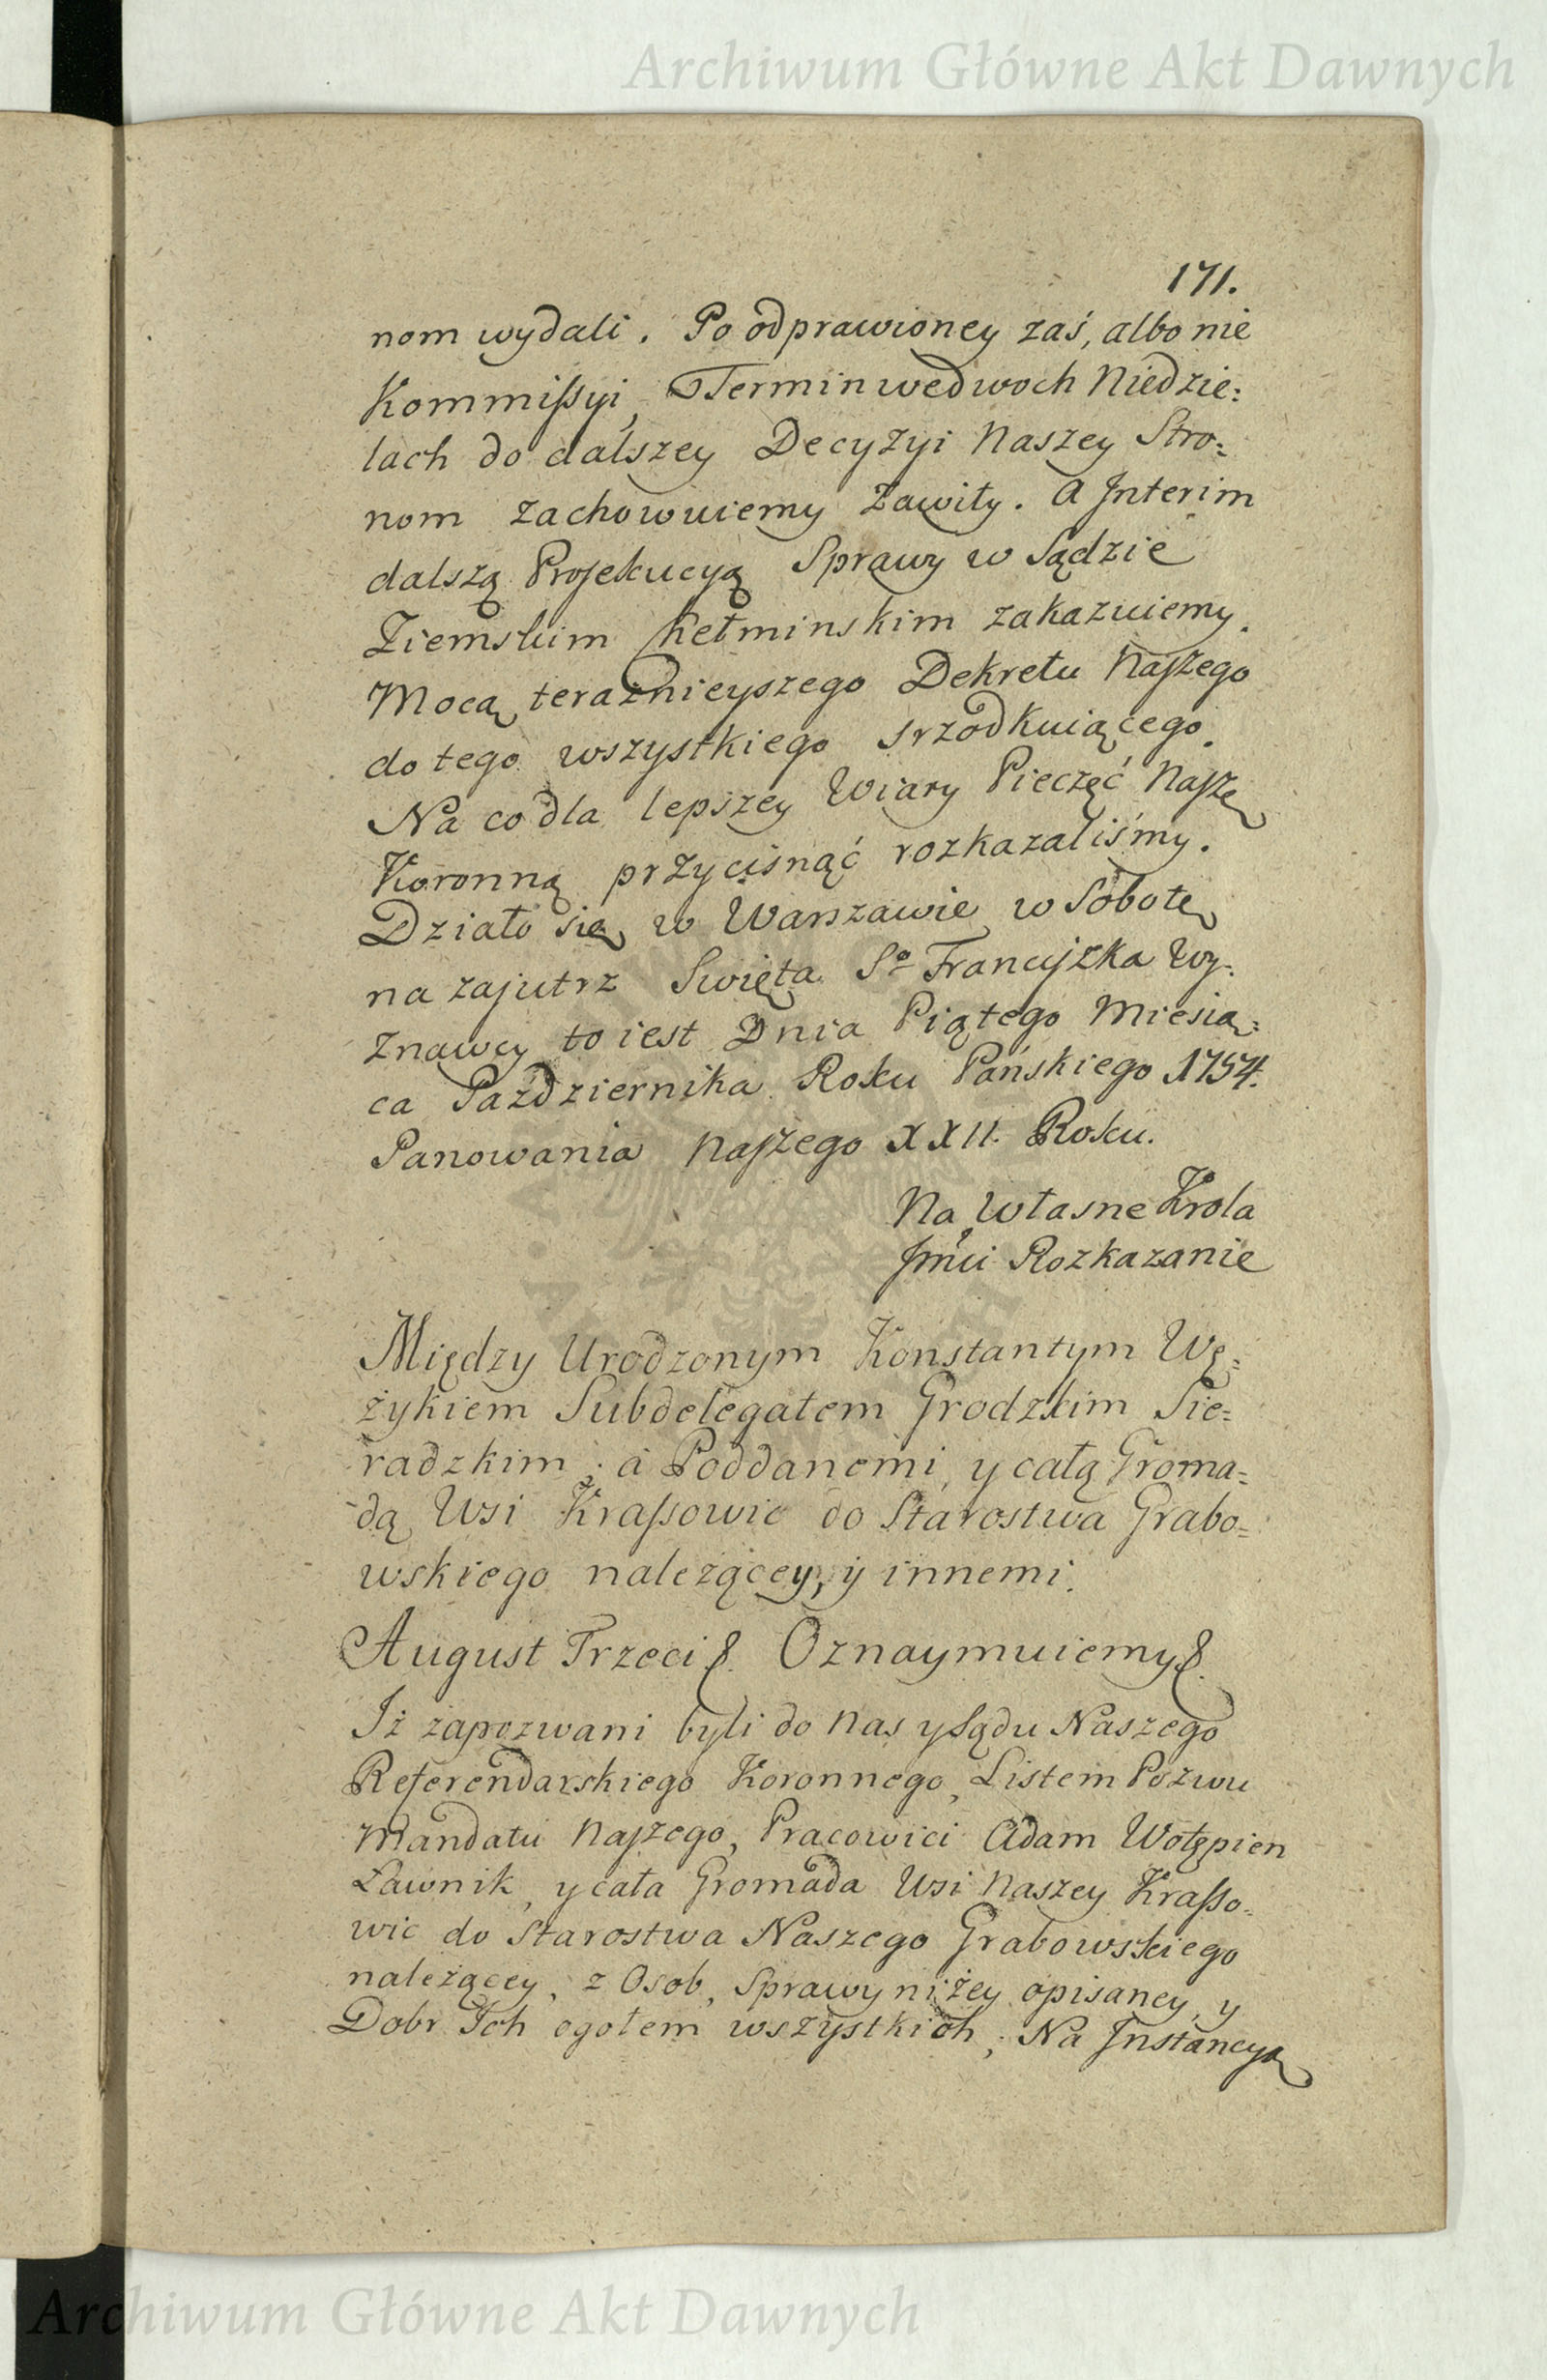 Archiwum Główne Akt Dawnych
171.
nom wydali. Po odprawioney zaś, albo nie
Kommissyi, Termin we dwoch Niedzie:
lach do dalszey Decyzyi Naszey Stro:
nom zachowuiemy Zawity. A Interim
dalszą Prosekucyą Sprawy w Sądzie
Ziemskim Chełminskim zakazuiemy.
Mocą teraznieyszego Dekretu Naszego
do tego wszystkiego srzodkuiącego.
Na co dla lepszey Wiary Pieczęć Naszę
Koronną przycisnąć rozkazaliśmy.
Działo się w Warszawie w Sobotę
na zajutrz Swięta So Franciszka Wy:
znawcy to iest Dnia Piątego Miesią:
ca Pazdziernika Roku Pańskiego 1754.
Panowania Naszego XXII. Roku.
Na własne Krola
Jmci Rozkazanie
Między Urodzonym Konstantym Wę:
żykiem Subdelegatem Grodzkim Sie:
radzkim; a Poddanemi y całą Groma:
dą Wsi Krassowic do Starostwa Grabo:
wskiego należącey, y innemi.
August Trzeci &. Oznaymuiemy &.
Iż zapozwani byli do Nas y Sądu Naszego
Referendarskiego Koronnego, Listem Pozwu
Mandatu Naszego, Pracowici Adam Wołępien
Ławnik, y cała Gromada Wsi Naszey Krasso:
wic do Starostwa Naszego Grabowskiego
należącey, z Osob, Sprawy niżey opisaney, y
Dobr Ich ogołem wszystkich, Na Instancyą
Archiwum Główne Akt Dawnych